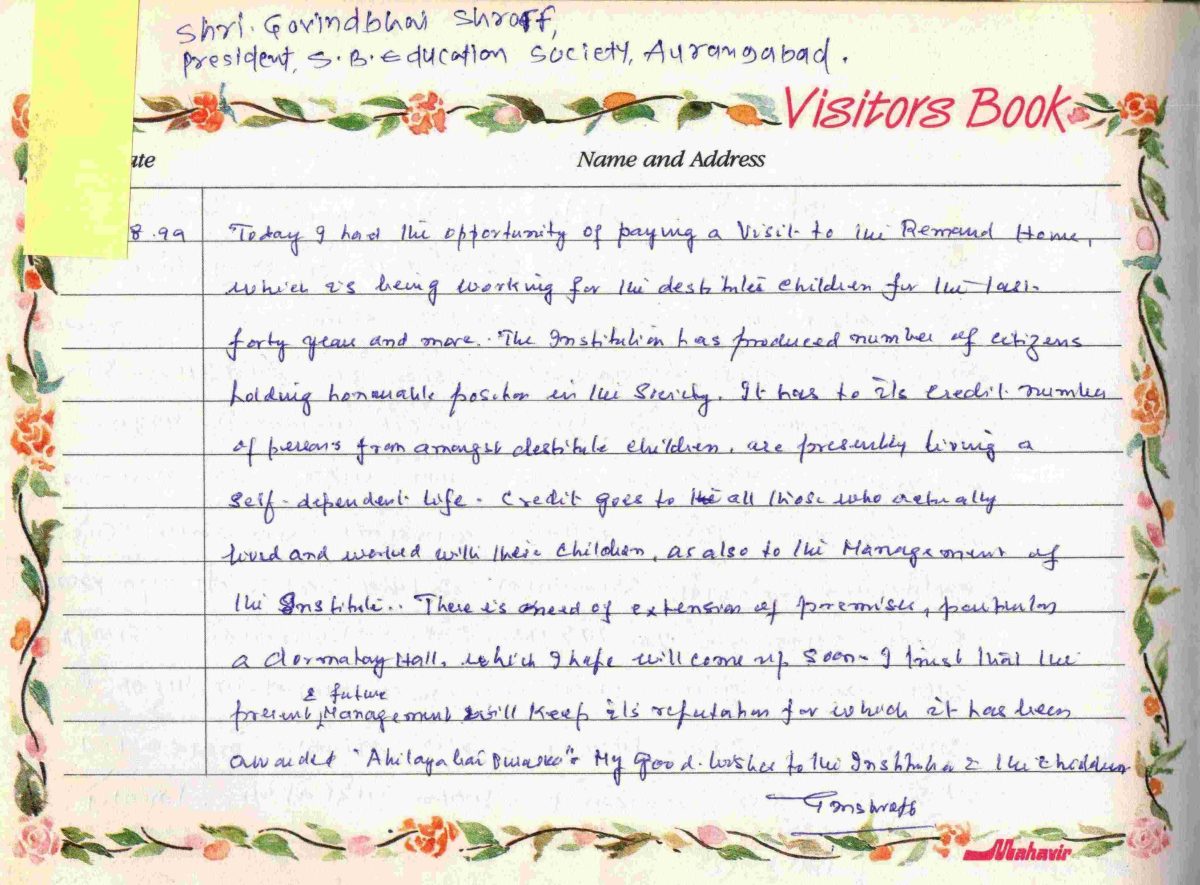 Shri. Govindbhai Shroff,
President, S.B. Education Society, Aurangabad.
Visitors Book
ate
Name and Address
8.99
Today I had the opportunity of paying a visit to the Remand Home,
which is being working for the destitute children for the last
forty years and more. The Institution has produced number of citizens
holding honourable position in the Society. It has to its credit number
of persons from amongst destitute children, are presently living a
self-dependent life. Credit goes to all those who actually
lived and worked with these children, as also to the Management of
the Institute. There is need of extension of premises, particular
a dormatory Hall, which I hope will come up soon. I trust that the
& future
present Management will keep its reputation for which it has been
awarded "Ahilyabai ". My good wishes to the Institution & the children
Gmshroff
Mahavir